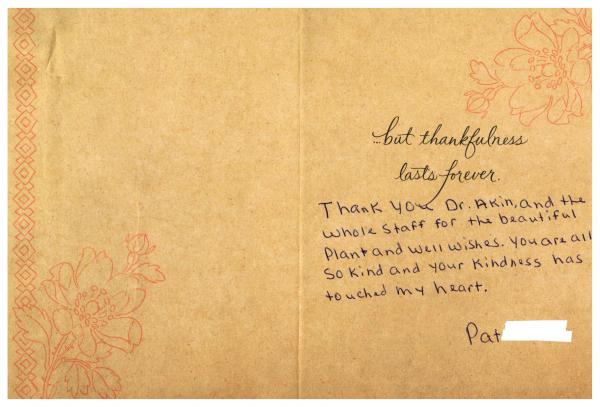 ...but thankfulness
lasts forever.
Thank you Dr. Akin, and the
whole staff for the beautiful
Plant and well wishes. You are all
so kind and your kindness has
touched my heart.
Pat